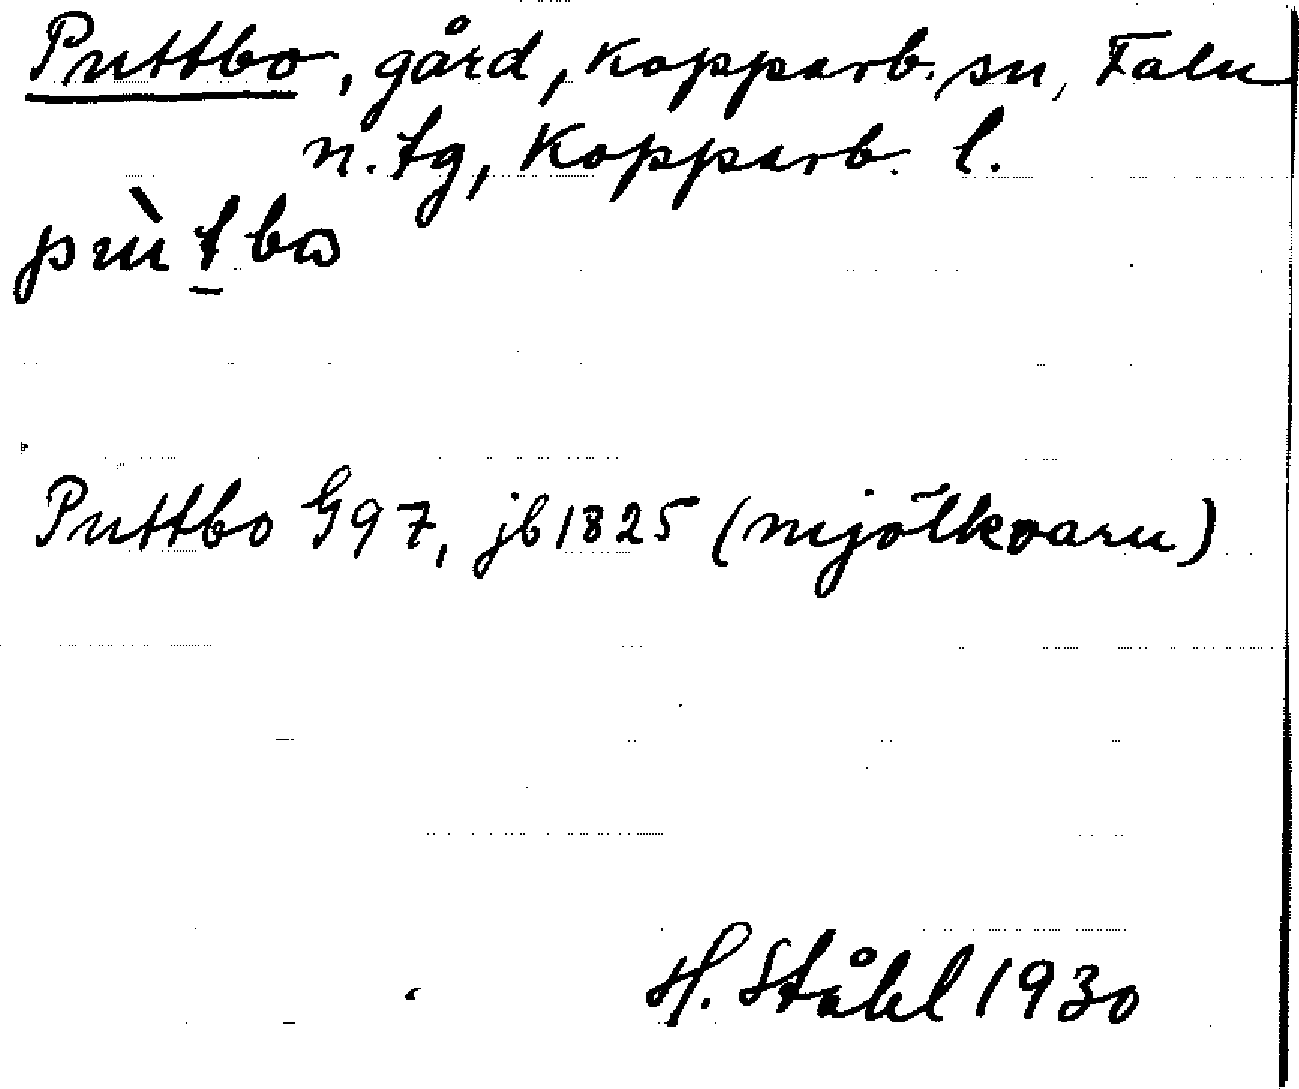 Puttbo, gård, Kopparb. sn, Falu
n. tg, Kopparb. l.
pùt̠bω
Puttbo G97, jb1825 (mjölkvarn)
H. Ståhl 1930